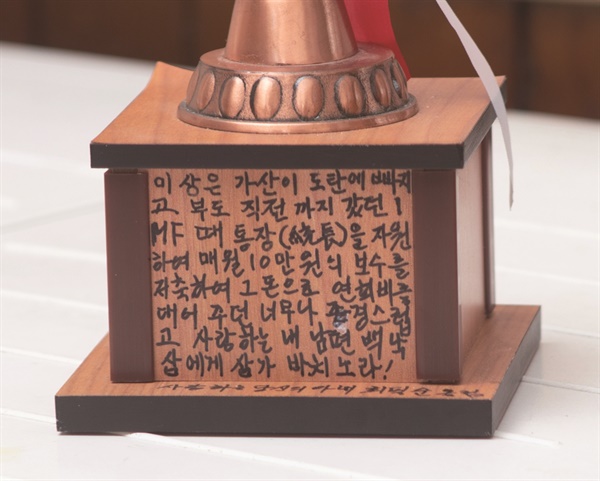 이 상은 가산이 도탄에 빠지
고 부도 직전 까지 갔던 I
MF 때 통장(統長)을 자원
하여 매월 10만 원의 보수를
저축하여 그 돈으로 연회비를
대어 주던 너무나 존경스럽
고 사랑하는 내 남편 백낙
삼에게 삼가 바치노라!